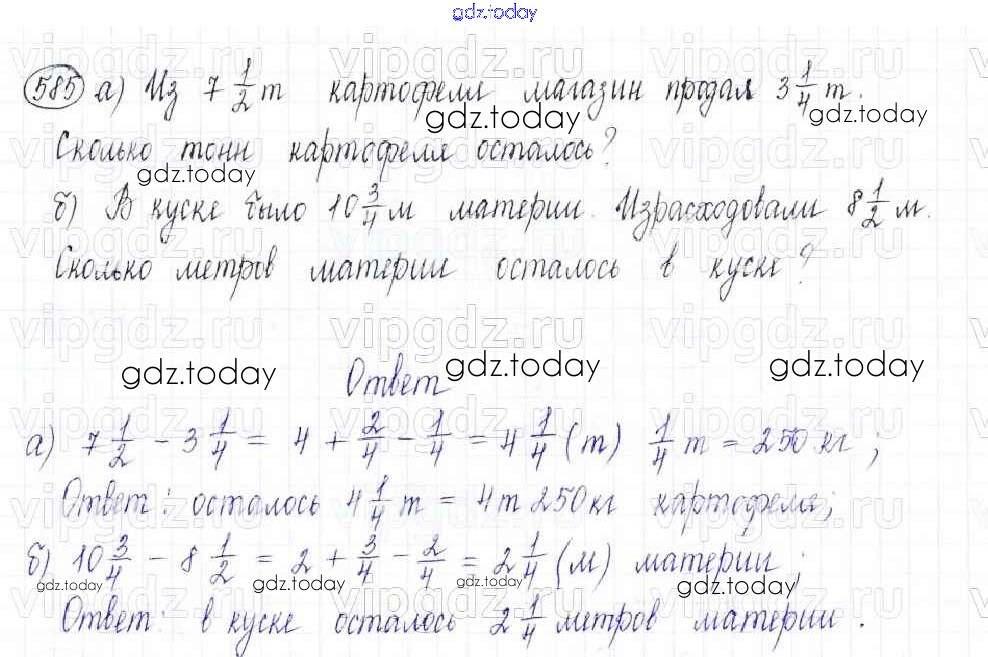 gdz.today
585 а) Из 7 1/2 т картофеля магазин продал 3 1/4 т.
gdz.today gdz.today
Сколько тонн картофеля осталось?
gdz.today
б) В куске было 10 3/4 м материи. Израсходовали 8 1/2 м.
Сколько метров материи осталось в куске?
vipgdz.ru vipgdz.ru vipgdz.ru
gdz.today Ответ gdz.today gdz.today
а) 7 1/2 - 3 1/4 = 4 + 2/4 - 1/4 = 4 1/4 (т) 1/4 т = 250 кг;
Ответ: осталось 4 1/4 т = 4т 250кг картофеля;
б) 10 3/4 - 8 1/2 = 2 + 3/4 - 2/4 = 2 1/4 (м) материи;
gdz.today gdz.today gdz.today gdz.today
Ответ: в куске осталось 2 1/4 метров материи.